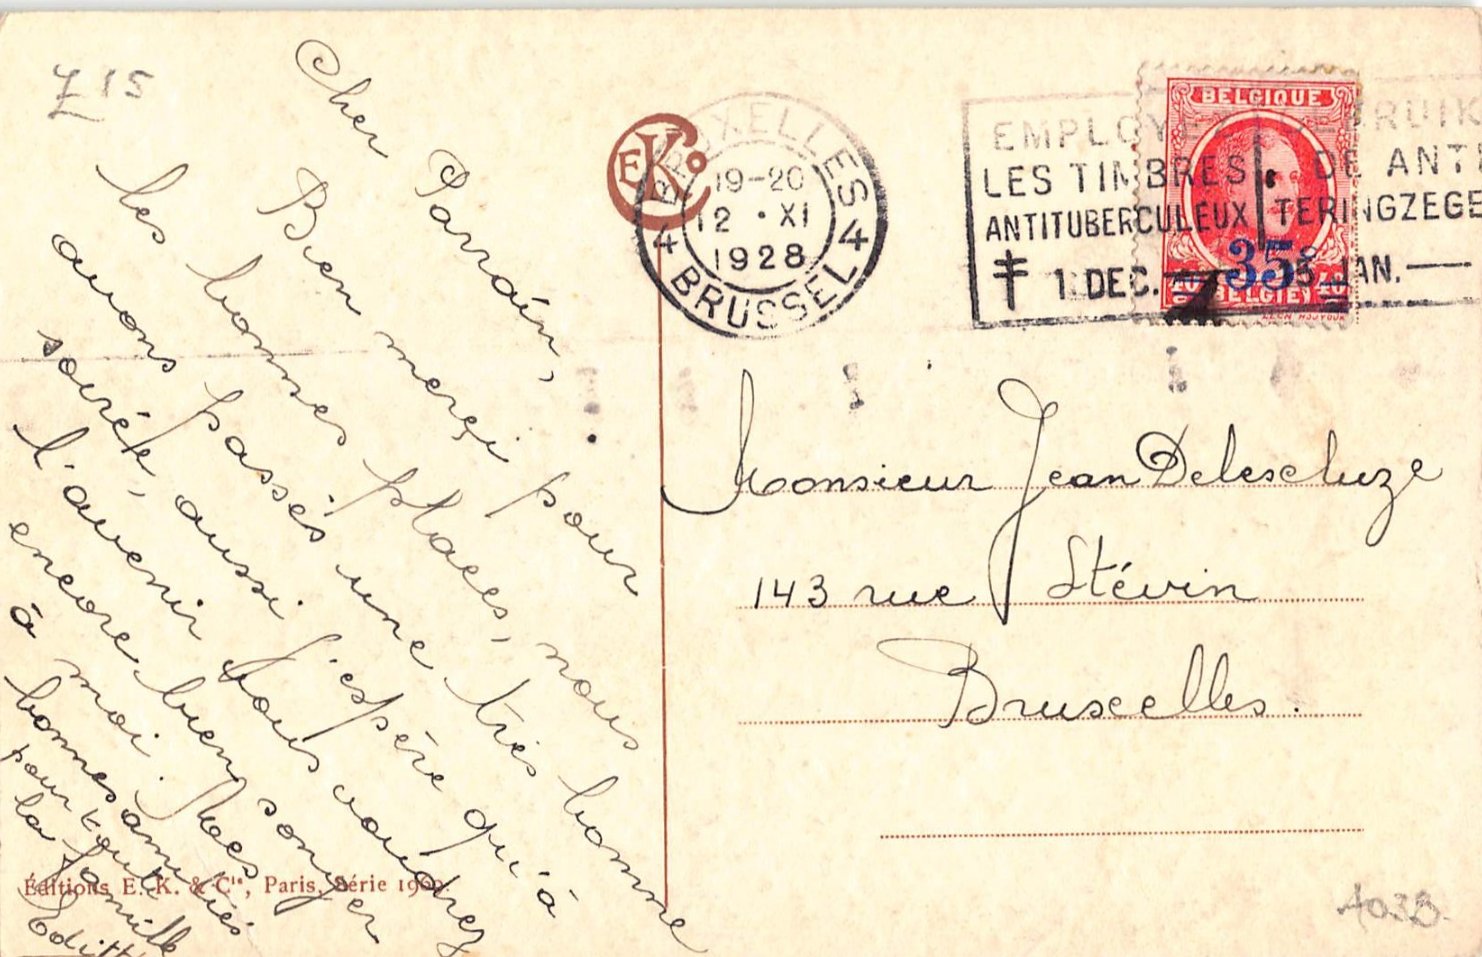 £15
Cher Parrain,
Bien merçi pour
les bonnes places, nous
avons passés une très bonne
soirée, aussi j'espère qu'à
l'avenir vous voudrez
encore bien songer
à moi. Mes
bonnes amitiés
pour toute
la famille
Edith
Éditions E. K. & Cie, Paris, Série 1909.
EKCo
BRUXELLES
19-20
12 • XI
1928
4 BRUSSEL 4
EMPLOYE GEBRUIK
LES TIMBRES DE ANTI
ANTITUBERCULEUX TERINGZEGE
1. DEC. 5 JAN.
BELGIQUE
35c
40 BELGIË 40
Monsieur Jean Delescluze
143 rue Stévin
Bruxelles.
A03B